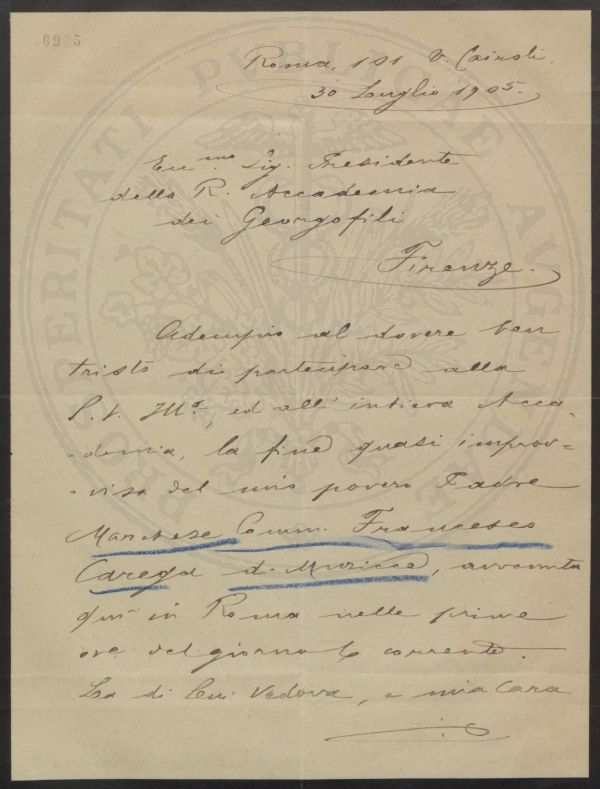 6935
Roma, 101 V. Cairoli.
30 Luglio 1905.
Ecc.mo Sig. Presidente
della R. Accademia
dei Georgofili
Firenze.
Adempio al dovere ben
triste di partecipare alla
S. V. Ill.a, ed all' intiera Acca-
-demia, la fine quasi improv-
-visa del mio povero Padre
Marchese Comm. Francesco
Carega di Muricce, avvenuta
qui in Roma nelle prime
ore del giorno 6 corrente.
La di Lui Vedova, e mia cara
PRO PERITATI PVBLICAE AVGENDAE